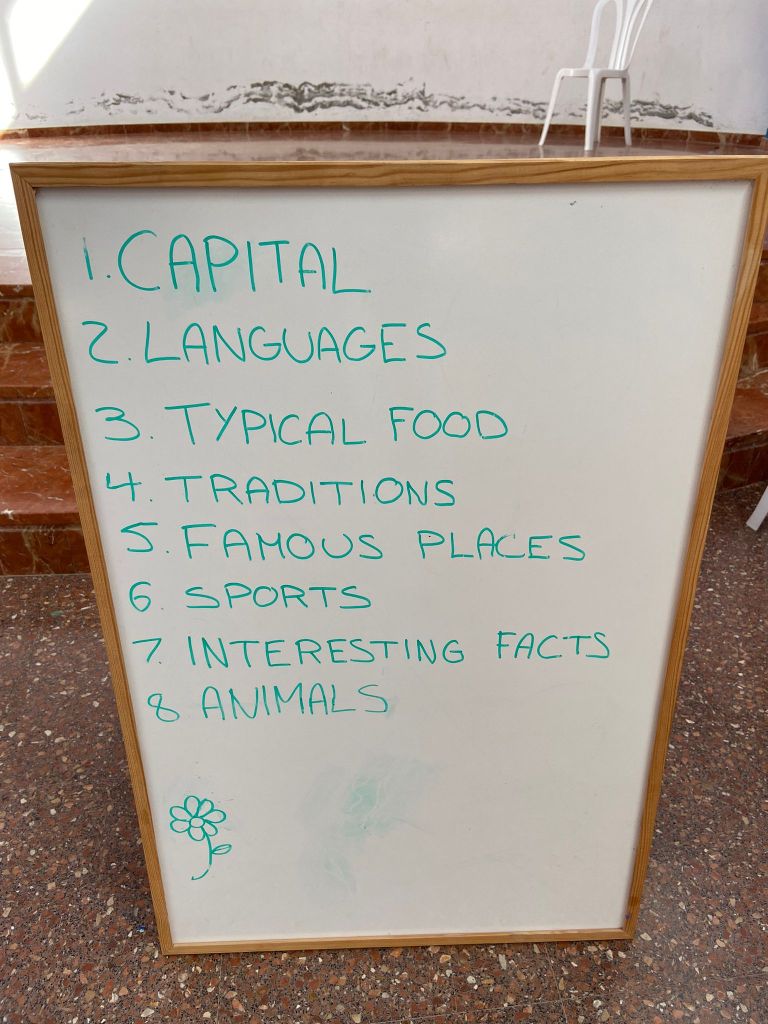 1. CAPITAL
2. LANGUAGES
3. TYPICAL FOOD
4. TRADITIONS
5. FAMOUS PLACES
6. SPORTS
7. INTERESTING FACTS
8 ANIMALS